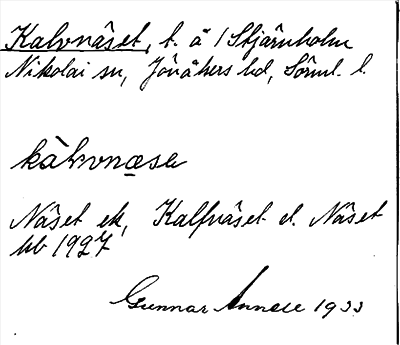 Kalvnäset, t. å / Stjärnholm
Nikolai sn, Jönåkers hd, Sörml. l.
kàlvnæse
Näset ek, Kalfnäset el. Näset
hb 1927
Gunnar Annell 1933